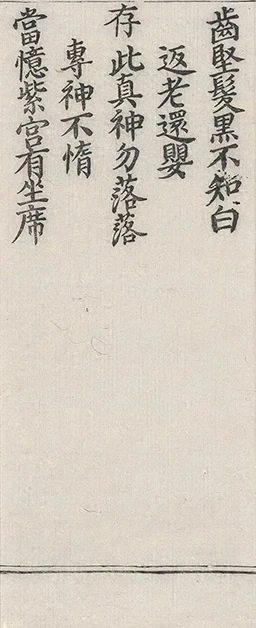 齒堅髮黒不知白
返老還嬰
存此真神勿落落
專神不惰
當憶紫宮有坐席